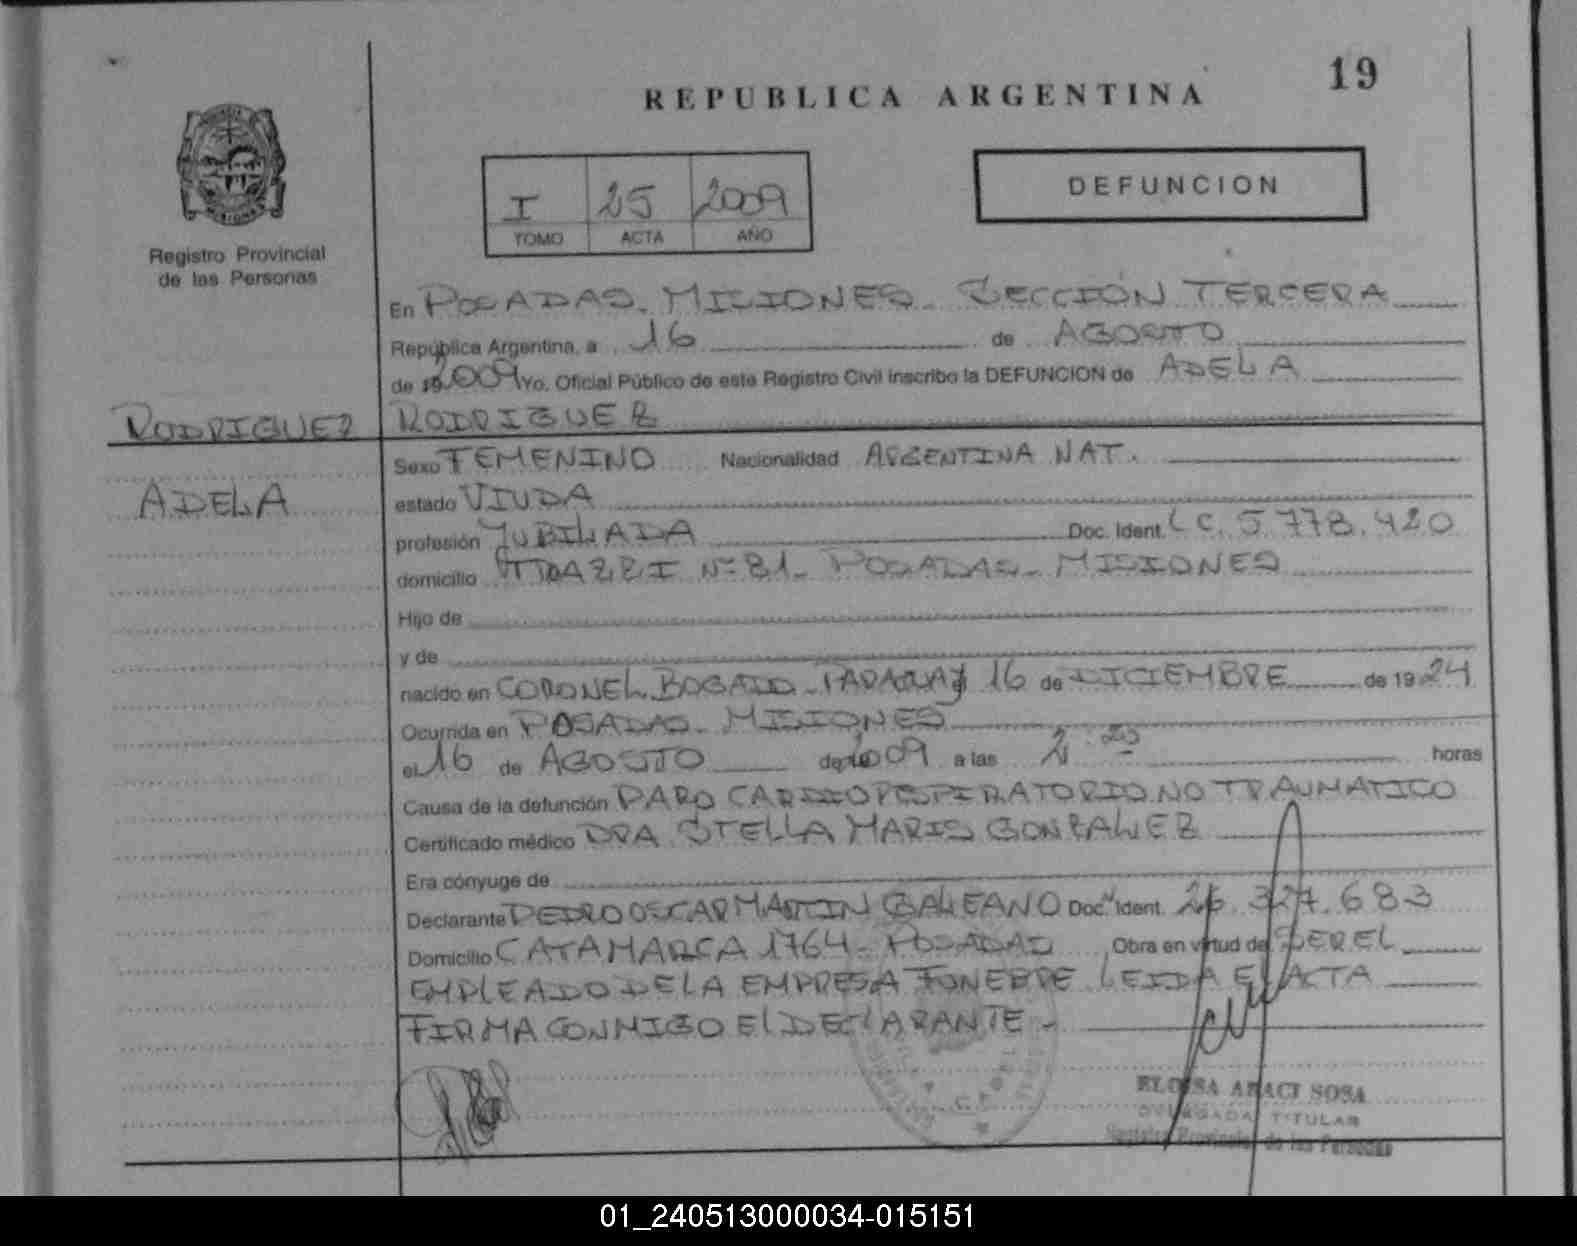 19
REPUBLICA ARGENTINA
DEFUNCION
I 25 2009
TOMO ACTA AÑO
Registro Provincial
de las Personas
En POSADAS - MISIONES - SECCIÓN TERCERA
República Argentina, a 16 de AGOSTO
de 2009 Yo. Oficial Público de este Registro Civil inscribo la DEFUNCION de ADELA
RODRIGUEZ
RODRIGUEZ
ADELA
Sexo FEMENINO Nacionalidad ARGENTINA NAT.
estado VIUDA
profesión JUBILADA Doc. Ident. LC. 5.778.420
domicilio Nº 81 - POSADAS - MISIONES
Hijo de
y de
nacido en CORONEL BOGADO - PARAGUAY 16 de DICIEMBRE de 1924
Ocurrida en POSADAS - MISIONES
el 16 de AGOSTO de 2009 a las horas
Causa de la defunción PARO CARDIORESPIRATORIO NO TRAUMATICO
Certificado médico DRA. STELLA MARIS GONZALEZ
Era cónyuge de
Declarante PEDRO OSCAR MARTIN GALEANO Doc. Ident. 26.327.683
Domicilio CATAMARCA 1764 - POSADAS Obra en virtud de SER EL
EMPLEADO DE LA EMPRESA FUNEBRE LEIDA EL ACTA
FIRMA CONMIGO El DECLARANTE -
ELOISA ARACI SOSA
DELEGADA TITULAR
Registro Provincial de las Personas
01_240513000034-015151